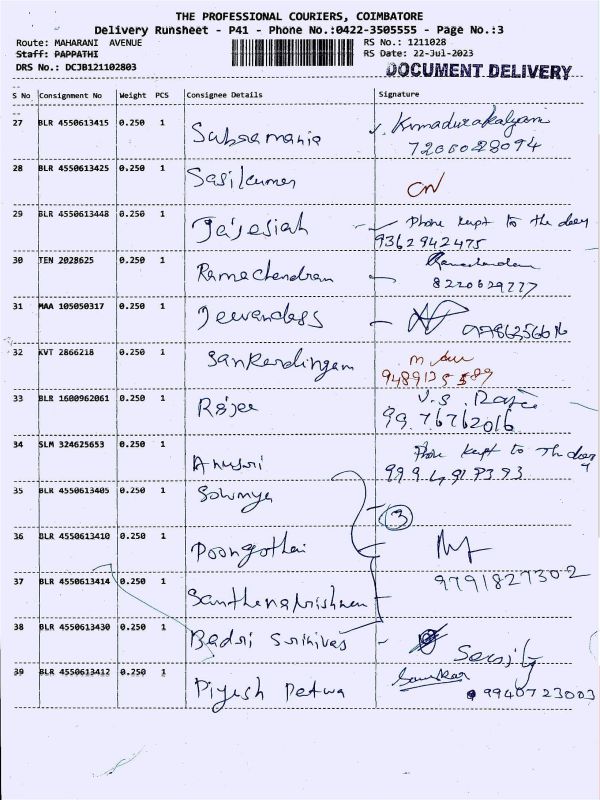 THE PROFESSIONAL COURIERS, COIMBATORE
Delivery Runsheet - P41 - Phone No.:0422-3505555 - Page No.:3
Route: MAHARANI AVENUE RS No.: 1211028
Staff: PAPPATHI RS Date: 22-Jul-2023
DRS No.: DCJB121102803
DOCUMENT DELIVERY
S No Consignment No Weight PCS Consignee Details Signature
27 BLR 4550613415 0.250 1 Subramania
7200028094
28 BLR 4550613425 0.250 1 Sasikumar
29 BLR 4550613448 0.250 1 Phone kept to the door
9362942475
30 TEN 2028625 0.250 1 Ramachandram Ramachandran
8220629777
31 MAA 105050317 0.250 1
32 KVT 2866218 0.250 1
33 BLR 1600962061 0.250 1 V.S. Raja
99.76762016
34 SLM 324625653 0.250 1 Anusri Phone kept to the door
35 BLR 4550613405 0.250 1 Sowmya 3
36 BLR 4550613410 0.250 1 Poongothai
9791827302
37 BLR 4550613414 0.250 1 Santhanakrishnan
38 BLR 4550613430 0.250 1 Badri Srinivas
39 BLR 4550613412 0.250 1 Piyush Petwa Sankar
9940723003